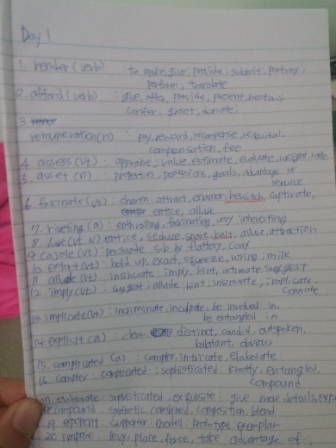 Day 1
1. render (verb) to make, give, provide, submit, portray
perform, translate
2. afford (verb) give, offer, provide, present, bestow
confer, grant, donate
3.
remuneration (n) pay, reward, recompense, requital
compensation, fee
4. assess (vt) appraise, value, estimate, evaluate, weight
5. asset (n) properties, possessions, goods, advantage or
resource
6. fascinate (vt) charm, attract, enamor, bewitch, captivate,
entice, allure
7. riveting (a) enthralling, fascinating, very interesting
8. lure (vt, n) entice, seduce, bait, allure, attraction
9. cajole (vt) persuade sb by flattery, coax
10. extort (vt) hold up, exact, squeeze, wring, milk
11. allude (vt) insinuate, imply, hint, intimate, suggest
12. imply (vt) suggest, allude, hint, insinuate, implicate,
connote
13. implicate (vt) incriminate, inculpate, be involved in,
be entangled in
14. explicit (a) clear distinct, candid, outspoken,
blatant, obvious
15. complicated (a) complex, intricate, elaborate
16. complex complicated, sophisticated, knotty, entangled,
compound
elaborate sophisticated, exquisite give more details, expa
compound synthetic, combined, composition, blend
19. exponent supporter, model, prototype, exemplar
20. impose levy, place, force, take advantage of